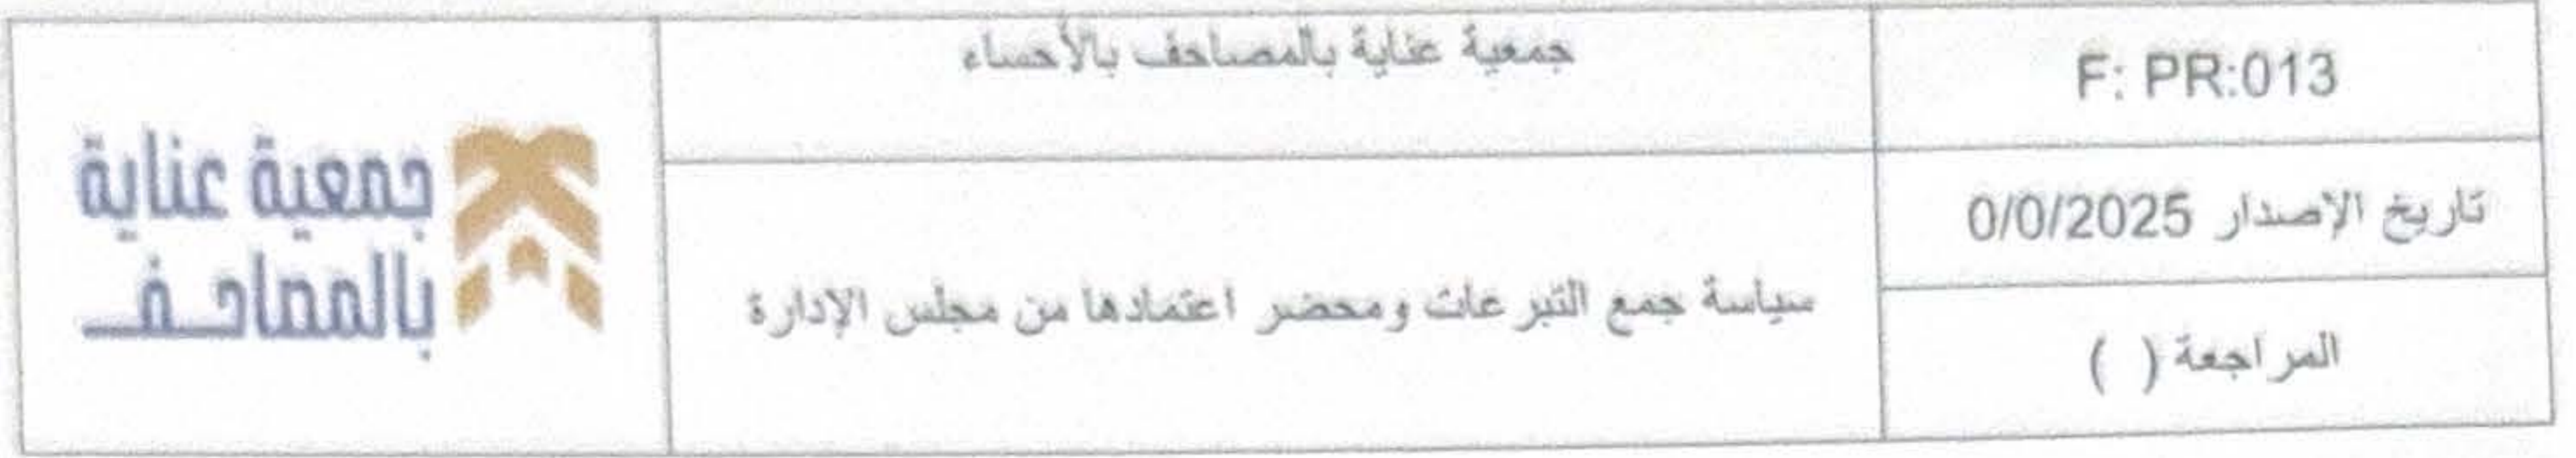 F: PR:013
تاريخ الإصدار 0/0/2025
المراجعة ( )
جمعية عناية بالمصاحف بالأحساء
سياسة جمع التبرعات ومحضر اعتمادها من مجلس الإدارة
جمعية عناية
بالمصاحف